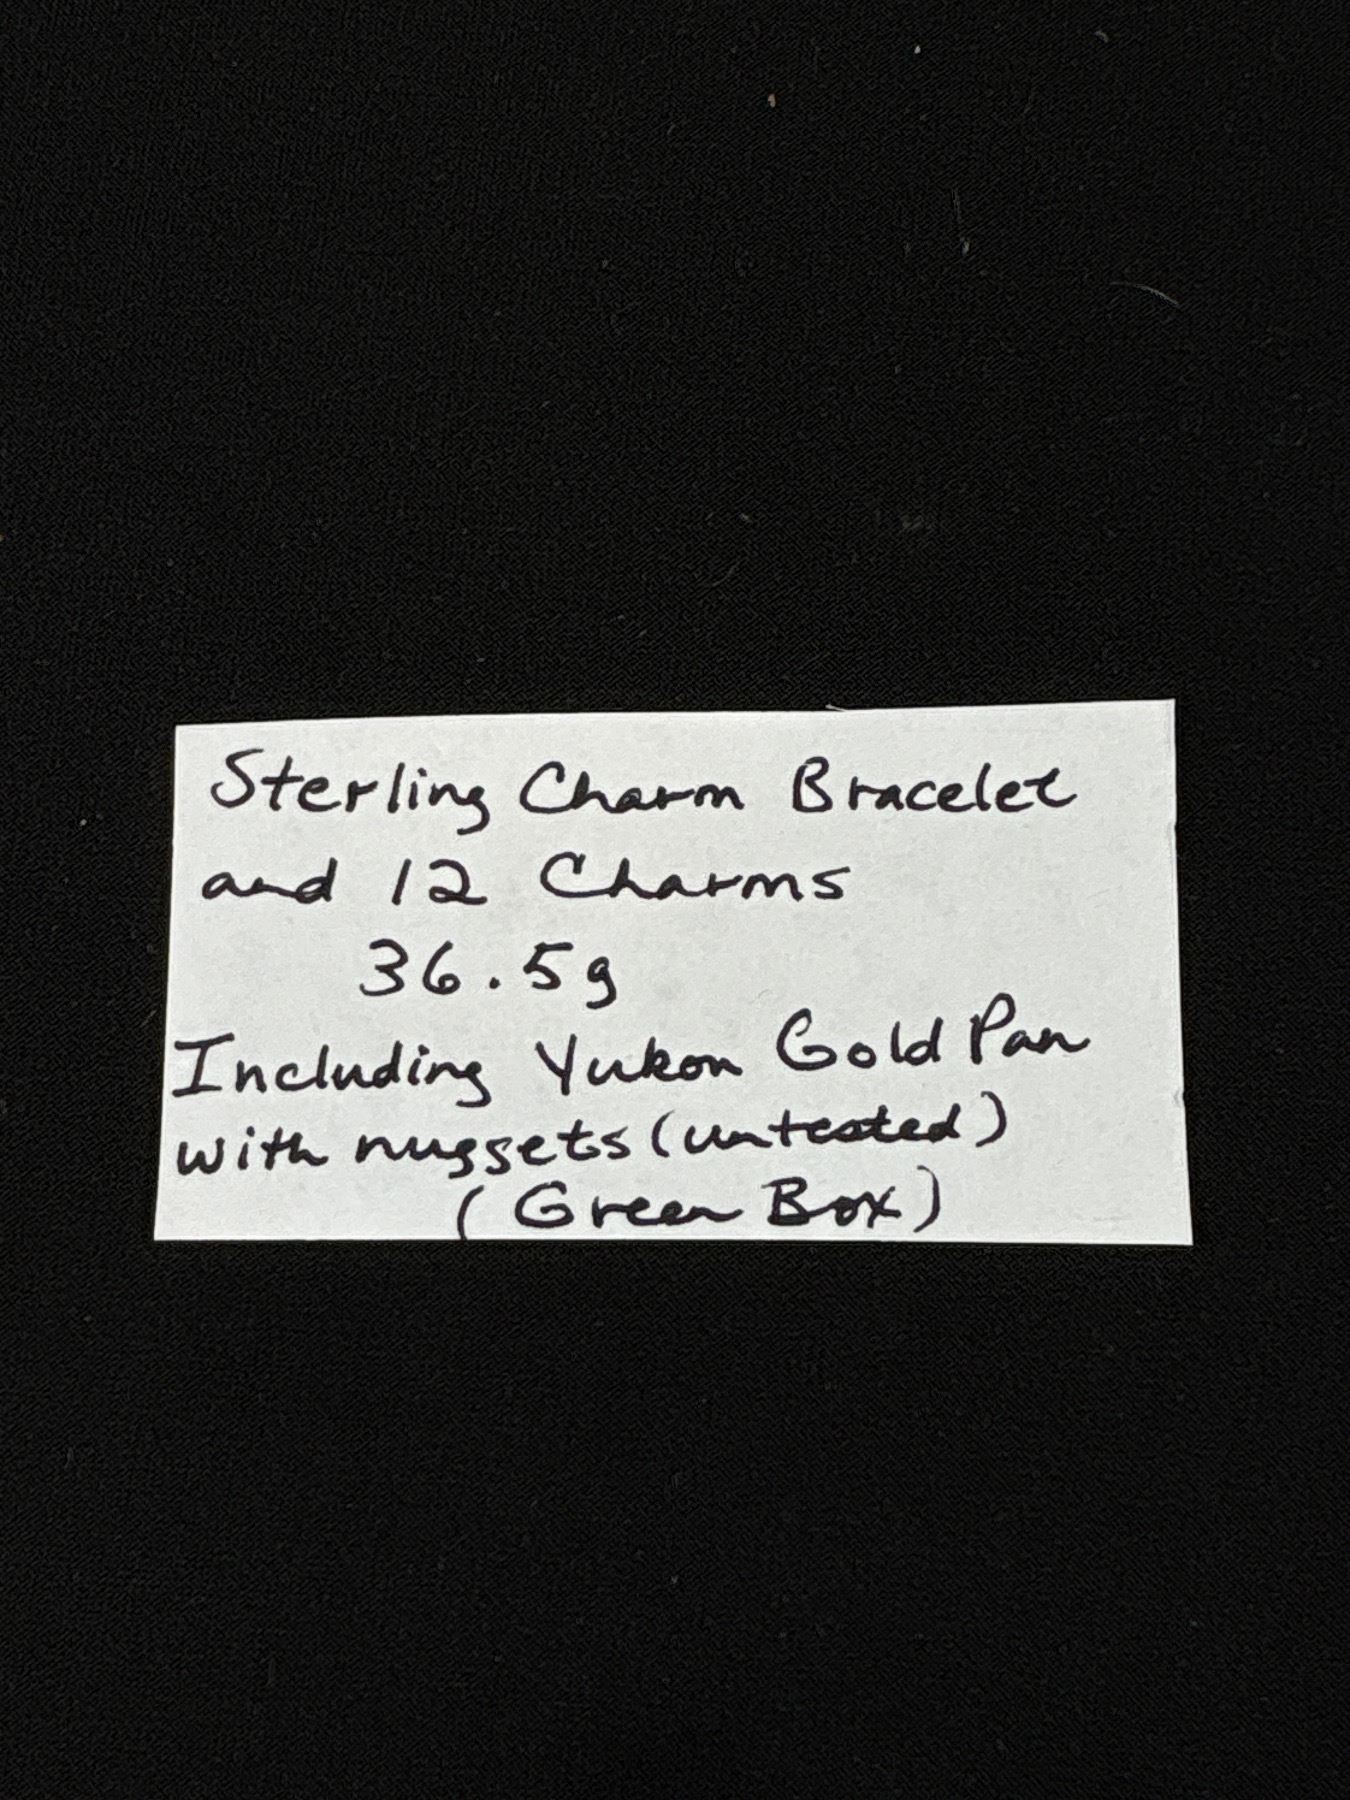 Sterling Charm Bracelet
and 12 Charms
36.5g
Including Yukon Gold Pan
with nuggets (untested)
(Green Box)